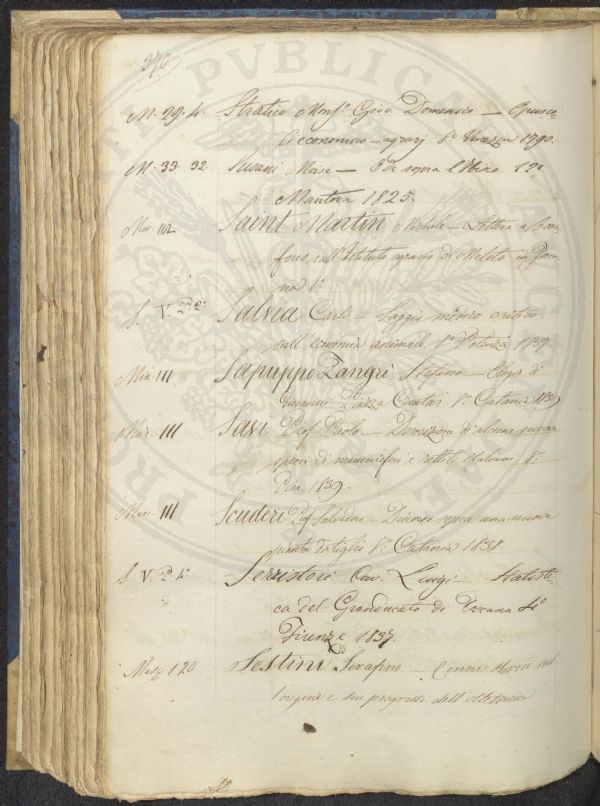 376
M. 29. 4. Stratico Monsr. Giov. Domenico — Opusco
li economico-agrarj 8.o Venezia 1790.
M. 33. 32 Susani — 12o
Mantova 1825.
Mis. 112 Saint Martin Michele — Lettera a
sull'Istituto agrario di Meleto in Tosca
na 8.o
S. V. P. 2.a Salvia Carlo — Saggio medico critico
sull'economia animale 8.o Potenza 1839.
Mis. 111 Sapuppo Zangri Stefano — Elogio di
Giovanni 8.o Catania 1839
Mis. 111 Savi Prof. Paolo — Descrizione di alcune nuove
specie di mammiferi e rettili Italiani 8.o
Pisa 1839.
Mis. 111 Scuderi Prof. Salvatore — Discorso sopra una nuova
pianta da tiglio 8.o Catania 1838
S. V. P. 4.a Serristori Cav. Luigi — Statisti-
ca del Granducato di Toscana 4.o
Firenze 1837.
Misc. 120 Sestini Serafino — Cenni storici sul
l'origine e sui progressi dell'Ateneo